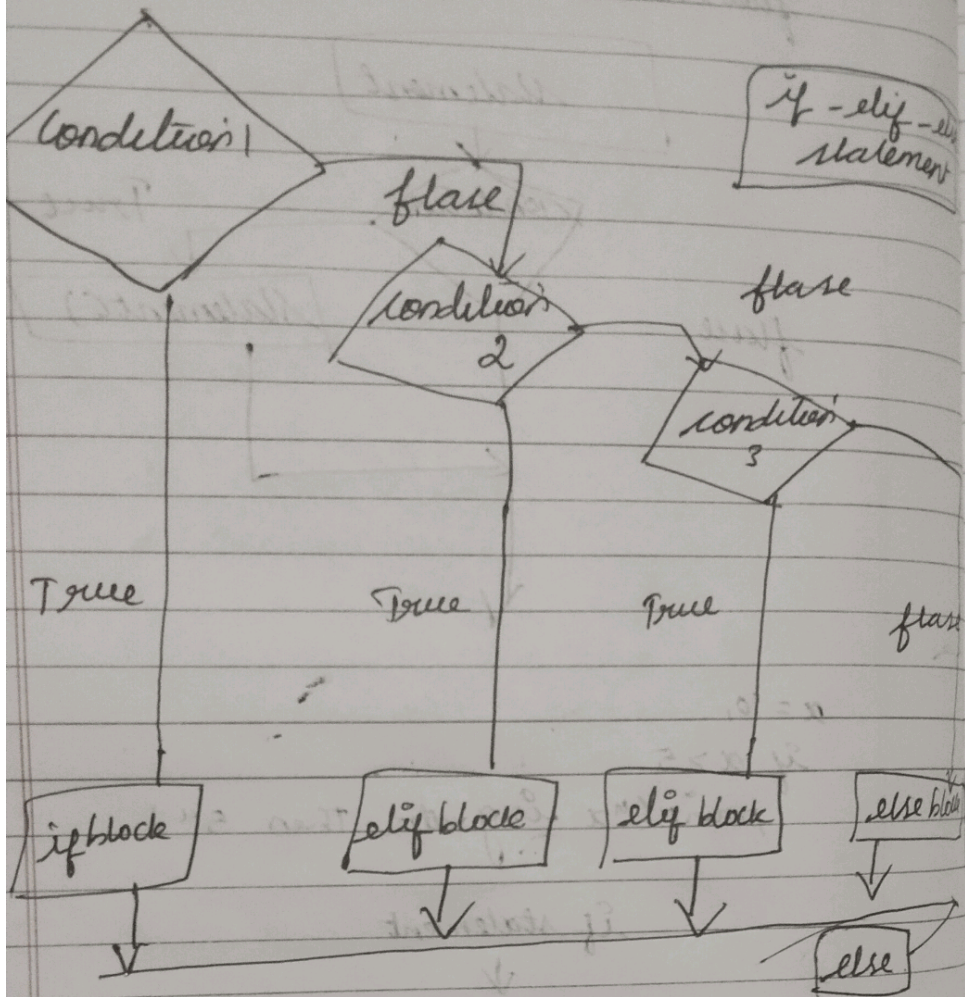 if - elif - els
statement
condition 1
flase
condition
2
flase
condition
3
True
True
True
flas
if block
elif block
elif block
else block
else